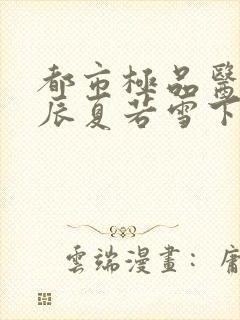 都市極品醫
辰夏若雪下
雲端漫畫：庸